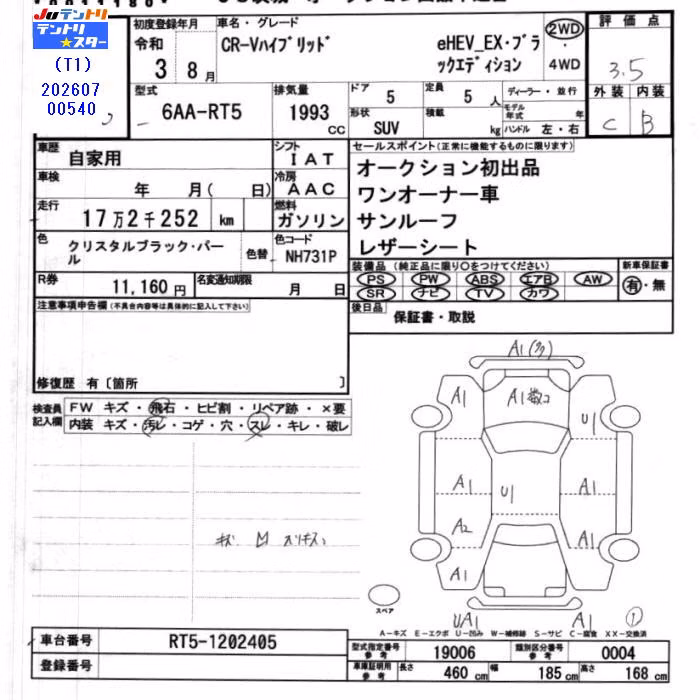 Juテントリ
テントリ★スター
(T1)
202607
00540
初度登録年月
令和
3 8月
車名・グレード
CR-Vハイブリッド eHEV_EX・ブラックエディション
2WD
・
4WD
評価点
3.5
外装 内装
C B
型式
6AA-RT5
排気量
1993
CC
ドア 5
定員 5 人
形状 SUV
積載 kg
ディーラー・並行
モデル年式 年
ハンドル 左・右
車歴 自家用
シフト IAT
車検 年 月( 日)
冷房 AAC
走行 17万2千252 km
燃料 ガソリン
色 クリスタルブラック・パール
色替
色コード NH731P
R券 11,160円
名変通知期限 月 日
セールスポイント(正常に機能するものに限ります)
オークション初出品
ワンオーナー車
サンルーフ
レザーシート
装備品 (純正品に限り○をつけてください)
PS PW ABS エアB AW
SR ナビ TV カワ
新車保証書
有・無
後日品
保証書・取説
注意事項申告欄(不具合内容等は具体的に記入して下さい)
修復歴 有〔箇所 〕
検査員記入欄
FW キズ・飛石・ヒビ割・リペア跡・×要
内装 キズ・汚レ・コゲ・穴・スレ・キレ・破レ
キズ
A1
A1
A1
U1
A1
U1
A1
A2
A1
A1
UA1
A1
①
スペア
A-キズ E-エクボ U-凹み W-補修跡 S-サビ C-腐食 XX-交換済
車台番号 RT5-1202405
登録番号
型式指定番号 参考 19006
類別区分番号 参考 0004
車庫証明用 参考 長さ 460 cm 幅 185 cm 高さ 168 cm